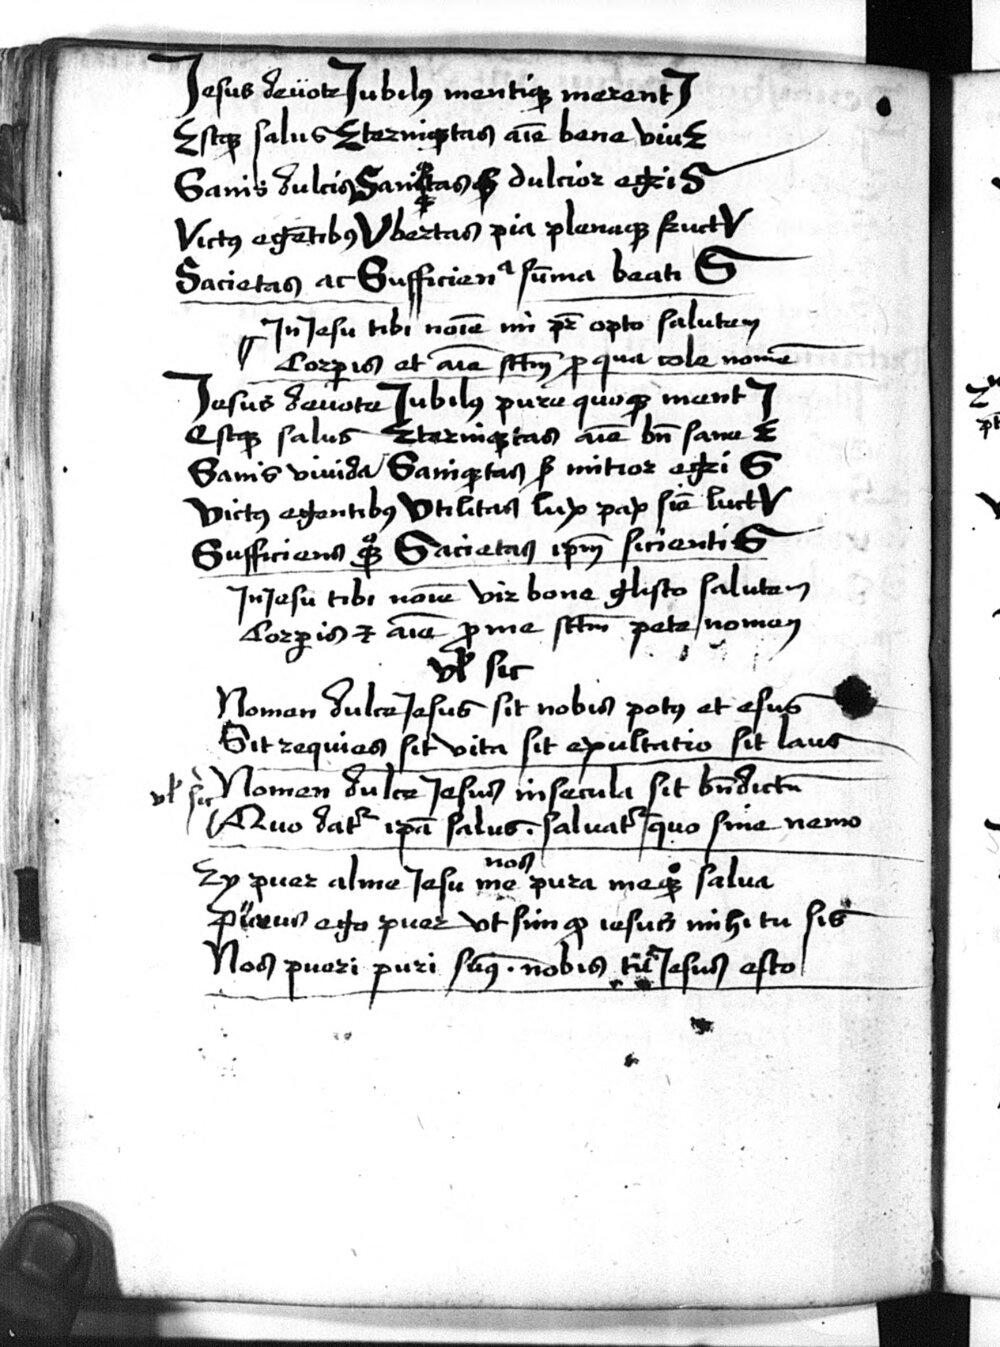 Jesus deuote Jubilꝰ mentiqꝫ merentJ
Estqꝫ salus Eterniqꝫtas aīe bene viuE
Sanis dulcis Sanitas sꝫ dulcior egriS
Victꝰ egētibꝰ Vbertas pia plenaqꝫ fructV
Sacietas ac Sufficienᵃ sūma beati S
In Jesu tibi noīe mi pr̄ opto salutem
Corpis et aīe sctm̄ p qua cole nomē
Jesus deuote Jubilꝰ pure quoqꝫ mentJ
Estqꝫ salus Eterniqꝫtas aīe bn̄ sane E
Sanis viuida Saniqꝫtas sꝫ mitior egri S
Victꝰ egentibꝰ Vtilitas lux pax siē luctV
Sufficiens qꝫ Sacietas ipm̄ sicientiS
In Jesu tibi noīe vir bone glisto salutem
Corpis ⁊ aīe p me sctm̄ pete nomen
vl sic
Nomen dulce Jesus sit nobis potꝰ et esus
Sit requies sit vita sit exultatio sit laus
vl sic Nomen dulce Jesus in secula sit bn̄dictū
Quo datʳ ipā salus. saluatʳ quo sine nemo
nos
Ey puer alme Jesu me pura meqꝫ salua
Purus ego puer vt sim qꝫ iesus mihi tu sis
Nos pueri puri simꝰ. nobis tu Jesus esto